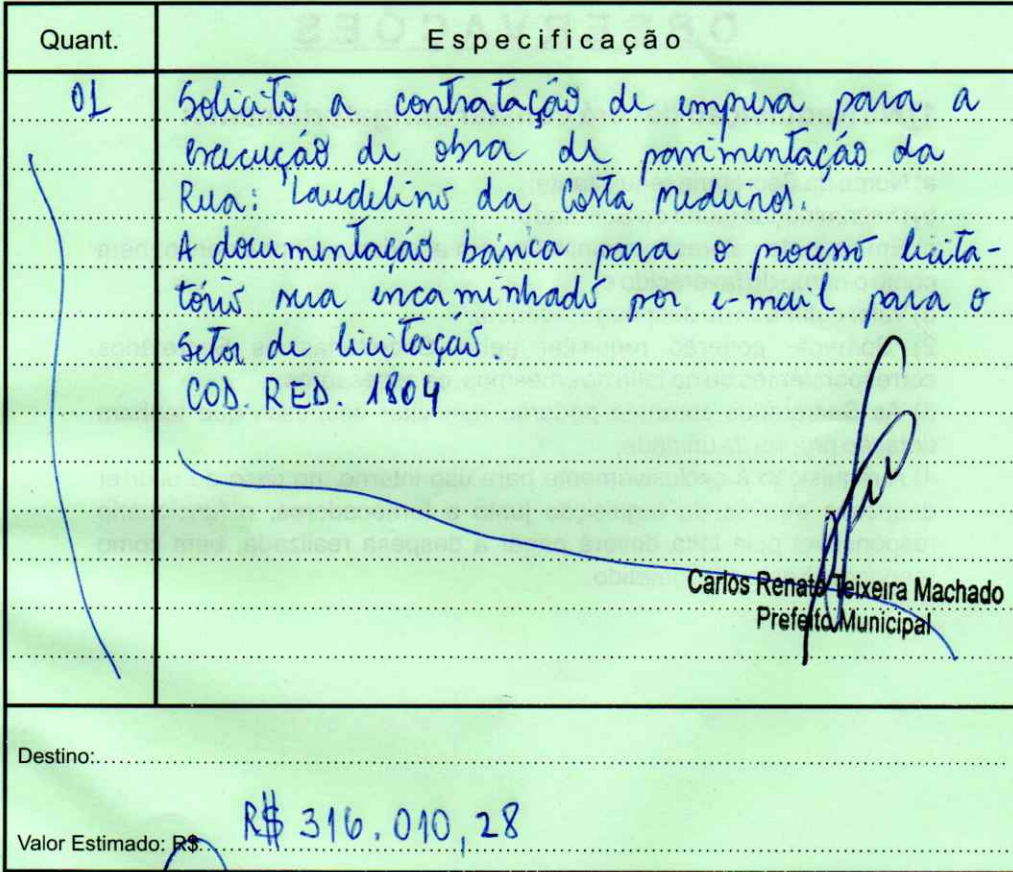 Quant. Especificação
01 Solicito a contratação de empresa para a
execução de obra de pavimentação da
Rua: Laudelino da Costa Medeiros.
A documentação básica para o processo licita-
tório sera encaminhado por e-mail para o
Setor de licitação.
COD. RED. 1804
Carlos Renato Teixeira Machado
Prefeito Municipal
Destino:
Valor Estimado: R$ R$ 316.010,28